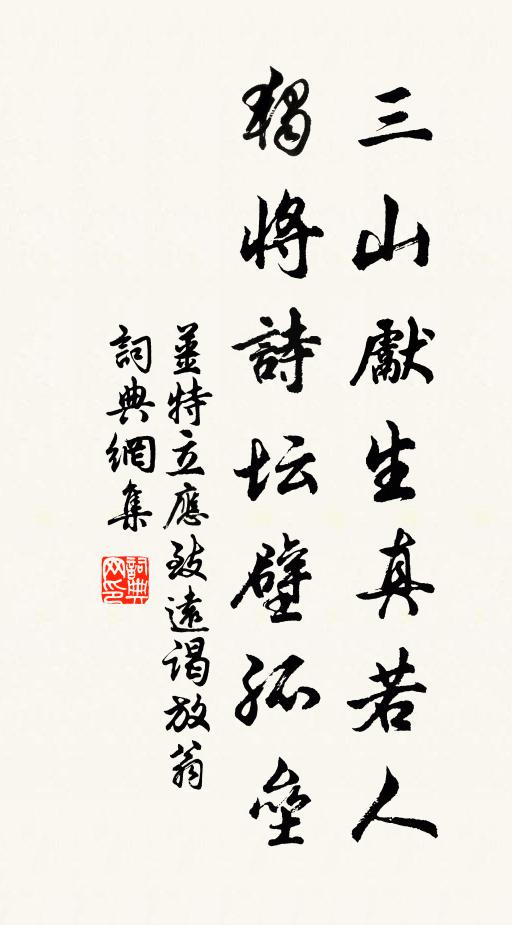 三山獻生真若人
獨將詩坛壁孤壘
姜特立應致遠謁放翁
詞典網集
詞典网印